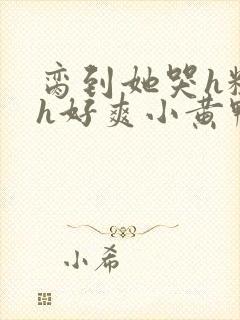 脔到她哭h粗
h好爽小黄鸭
小希